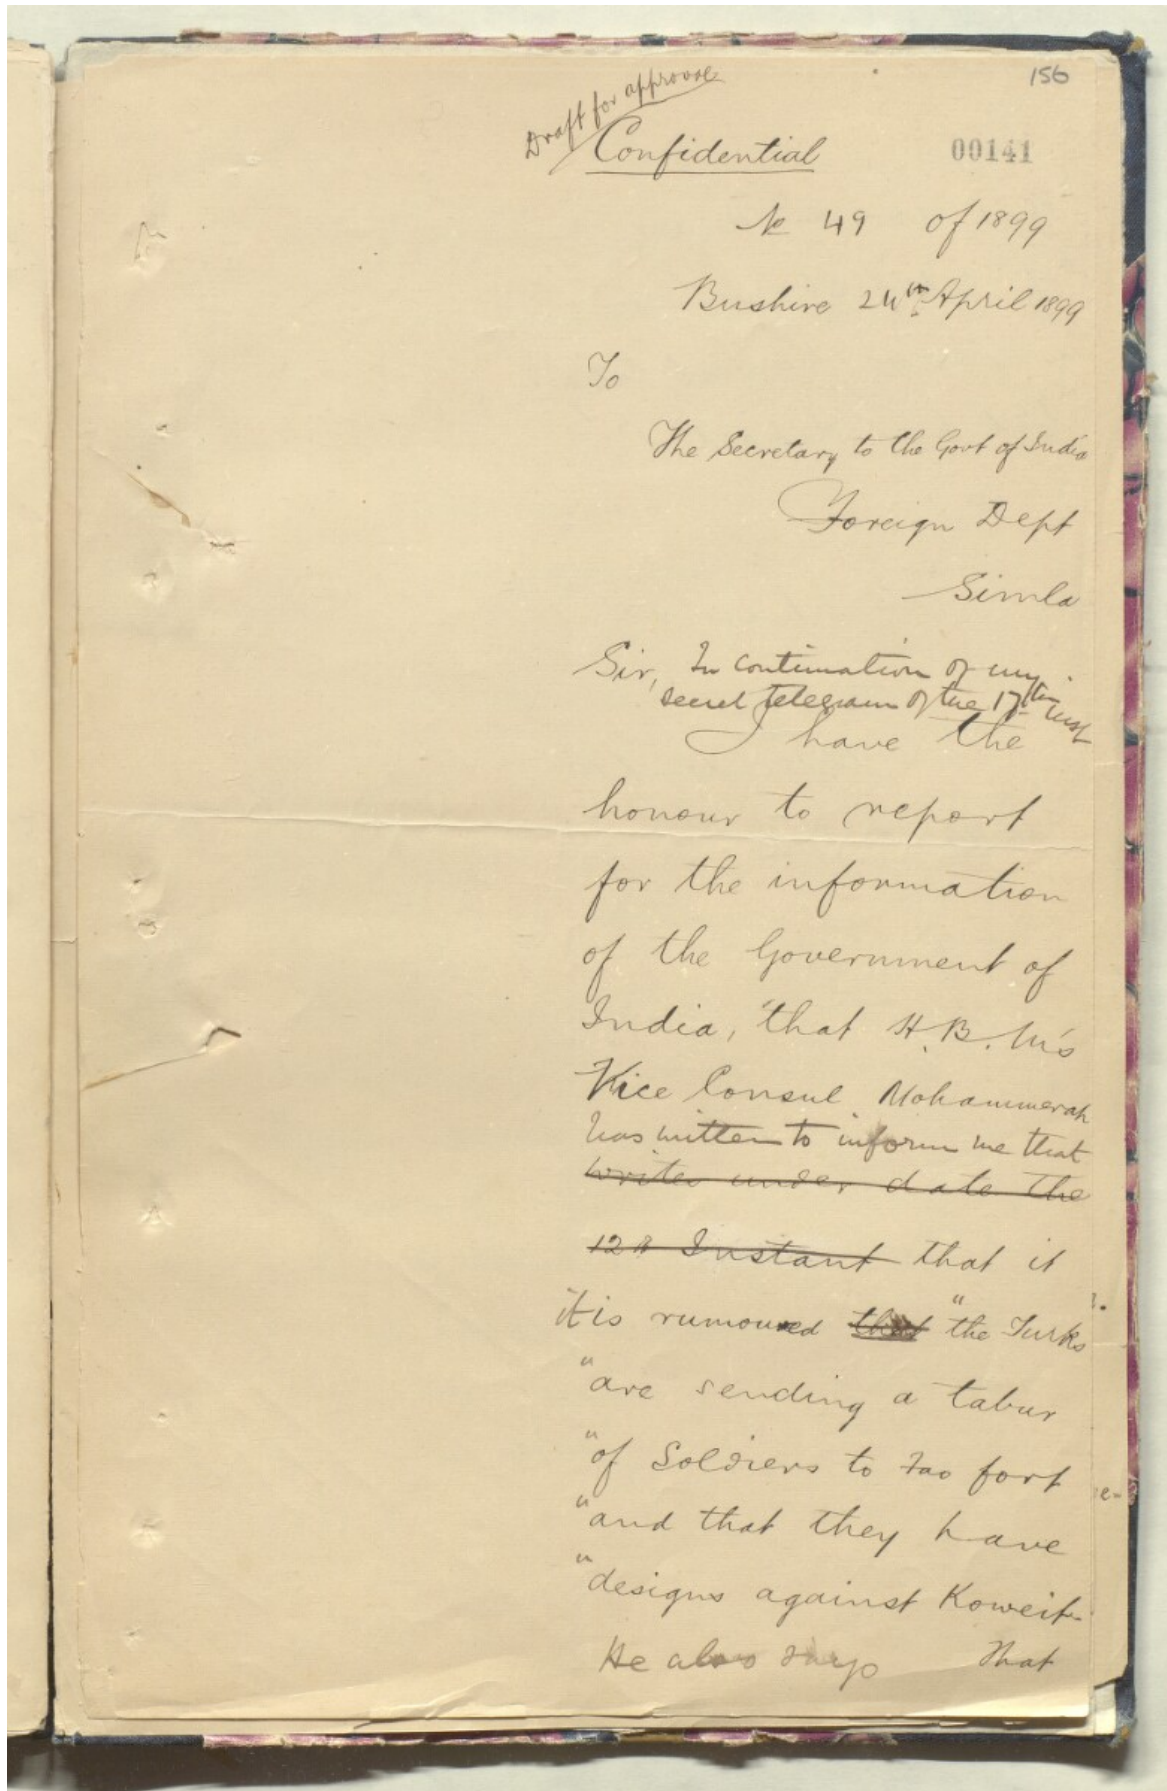 156
Draft for approval
Confidential
00141
No 49 of 1899
Bushire 24th April 1899
To
The Secretary to the Govt of India
Foreign Dept
Simla
Sir, In continuation of my
secret telegram of the 17th inst
I have the
honour to report
for the information
of the Government of
India, that H.B.M's
Vice Consul Mohammerah
has written to inform me that
writes under date the
12th Instant that it
it is rumoured that "the Turks
"are sending a tabur
"of Soldiers to Fao fort
"and that they have
"designs against Koweit.
He also says that